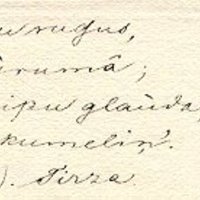 u rugus,
urumâ;
ipu glauda,
kumeliņ'.
). Tirza.